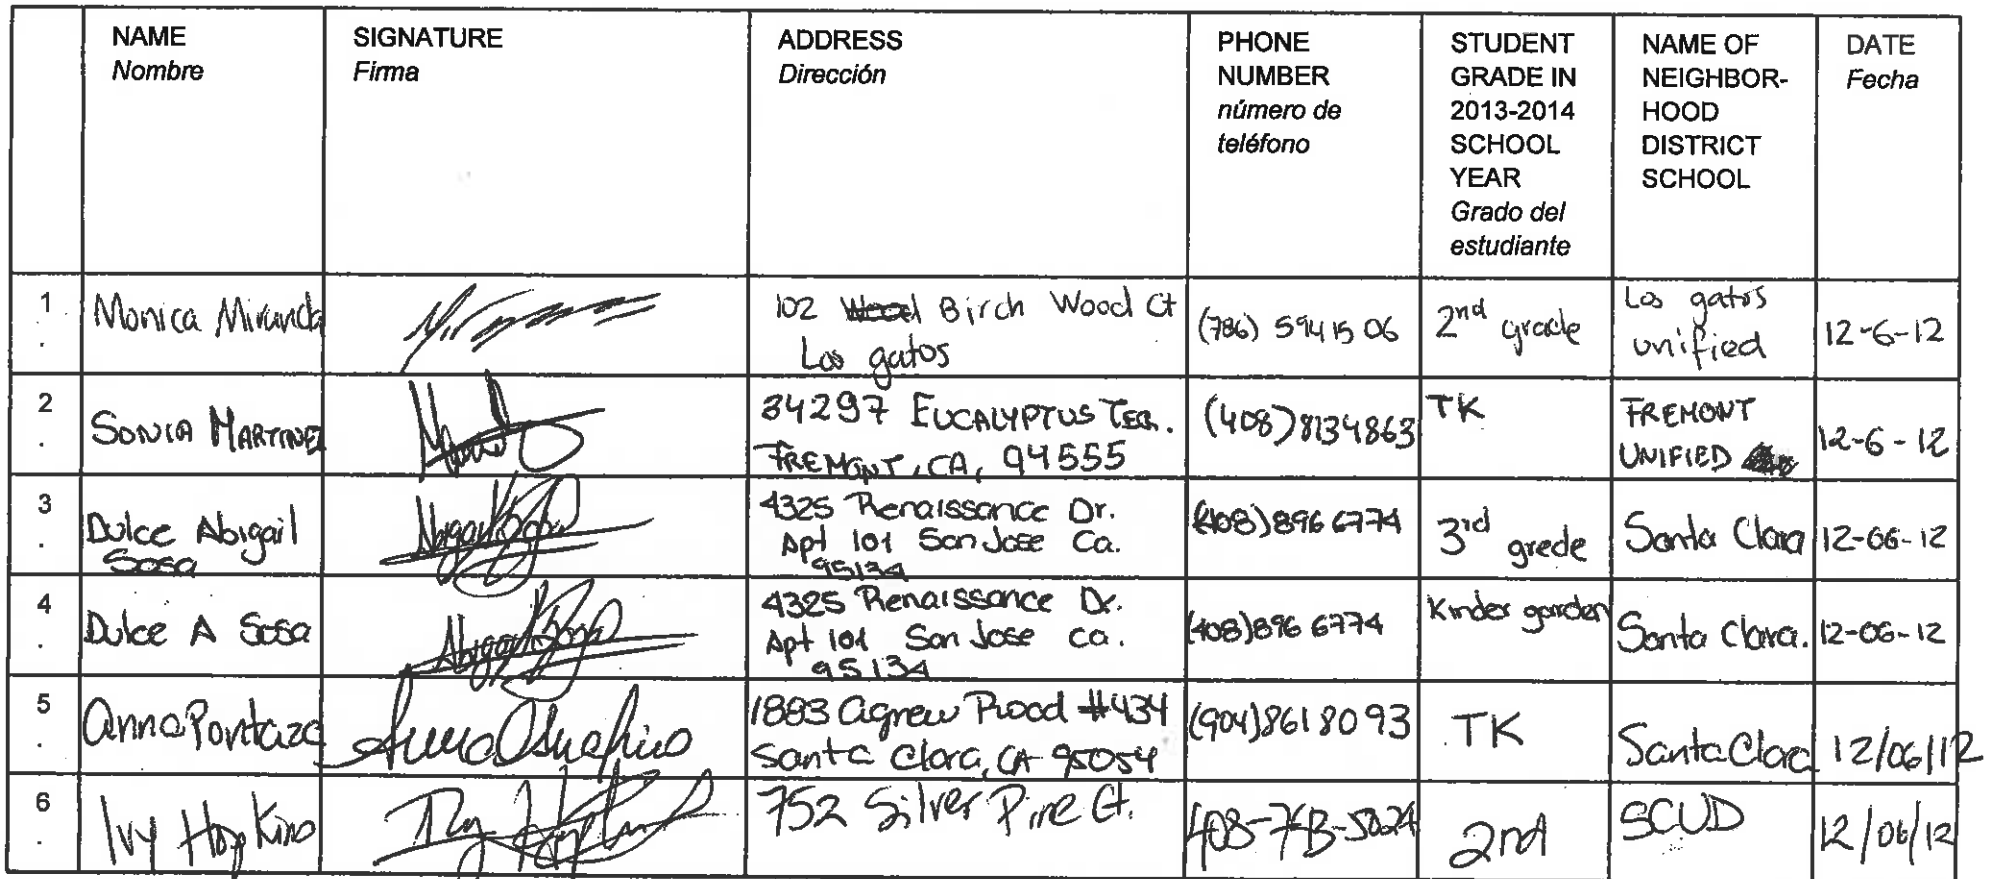 NAME
Nombre
SIGNATURE
Firma
ADDRESS
Dirección
PHONE
NUMBER
número de
teléfono
STUDENT
GRADE IN
2013-2014
SCHOOL
YEAR
Grado del
estudiante
NAME OF
NEIGHBOR-
HOOD
DISTRICT
SCHOOL
DATE
Fecha
1.
Monica Miranda
102 Birch Wood Ct
Los gatos
(786) 594 15 06
2nd grade
Los gatos
unified
12-6-12
2.
SONIA MARTINEZ
34297 EUCALYPTUS TER.
FREMONT, CA, 94555
(408) 8134863
TK
FREMONT
UNIFIED
12-6-12
3.
Dulce Abigail
Sosa
4325 Renaissance Dr.
Apt 101 San Jose Ca.
95134
(408) 896 6774
3rd grede
Santa Clara
12-06-12
4.
Dulce A Sosa
4325 Renaissance Dr.
Apt 101 San Jose ca.
95134
(408) 896 6774
Kinder garden
Santa Clara.
12-06-12
5.
Anna Pontaza
1883 Agnew Road #434
Santa Clara, CA 95054
(904) 861 8093
TK
Santa Clara
12/06/12
6.
Ivy Hopkins
Ivy
752 Silver Pine Ct.
2nd
SCUD
12/06/12